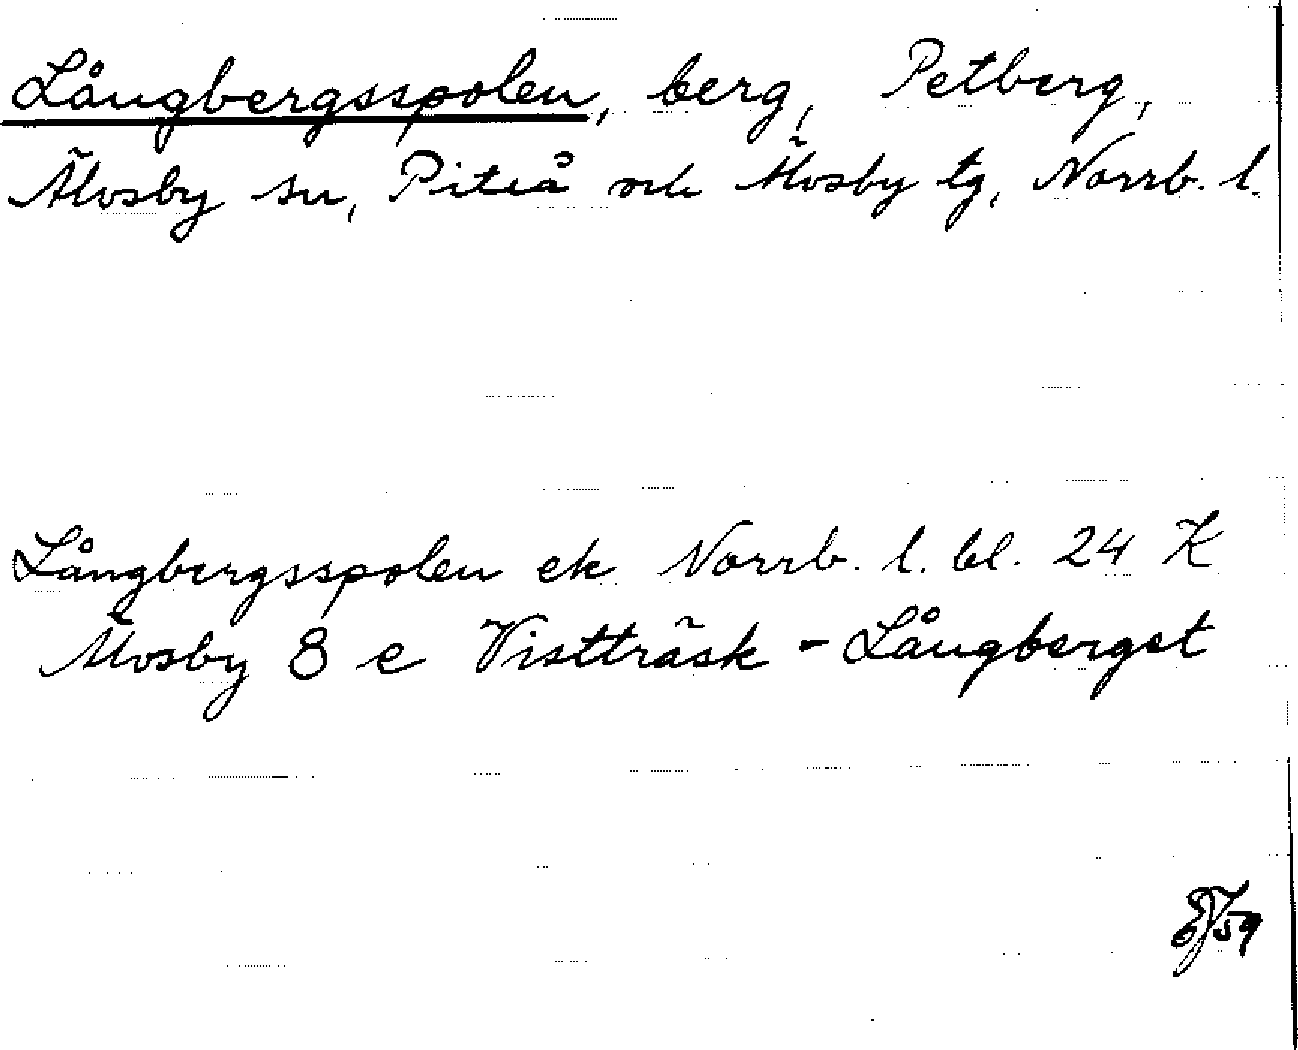 Långbergsspolen, berg, Petberg,
Älvsby sn, Piteå och Älvsby tg, Norrb. l.
Långbergsspolen ek Norrb. l. bl. 24 K
Älvsby 8 e Vistträsk - Långberget
59